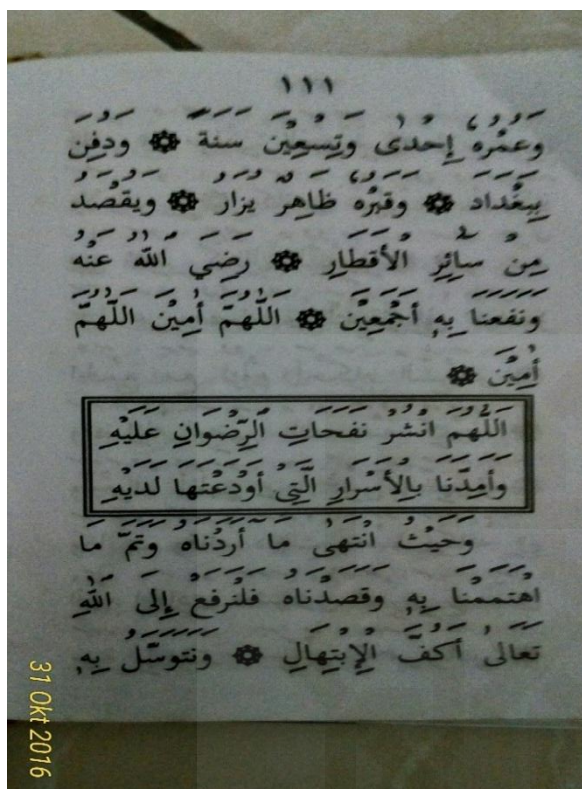 ١١١
وَعُمْرُهُ إِحْدَى وَتِسْعِيْنَ سَنَةً ۞ وَدُفِنَ
بِبَغْدَادَ ۞ وَقَبْرُهُ ظَاهِرٌ يُزَارُ ۞ وَيُقْصَدُ
مِنْ سَائِرِ الْأَقْطَارِ ۞ رَضِيَ اللهُ عَنْهُ
وَنَفَعَنَا بِهِ أَجْمَعِيْنَ ۞ اَللّٰهُمَّ أٰمِيْنَ اَللّٰهُمَّ
أٰمِيْنَ ۞
اَللّٰهُمَّ انْشُرْ نَفَحَاتِ الرِّضْوَانِ عَلَيْهِ
وَأَمِدَّنَا بِالْأَسْرَارِ الَّتِيْ أَوْدَعْتَهَا لَدَيْهِ
وَحَيْثُ انْتَهَى مَا أَرَدْنَاهُ وَتَمَّ مَا
اهْتَمَمْنَا بِهِ وَقَصَدْنَاهُ فَلْنَرْفَعْ إِلَى اللهِ
تَعَالَى أَكُفَّ الْإِبْتِهَالِ ۞ وَنَتَوَسَّلُ بِهِ
31 Okt 2016